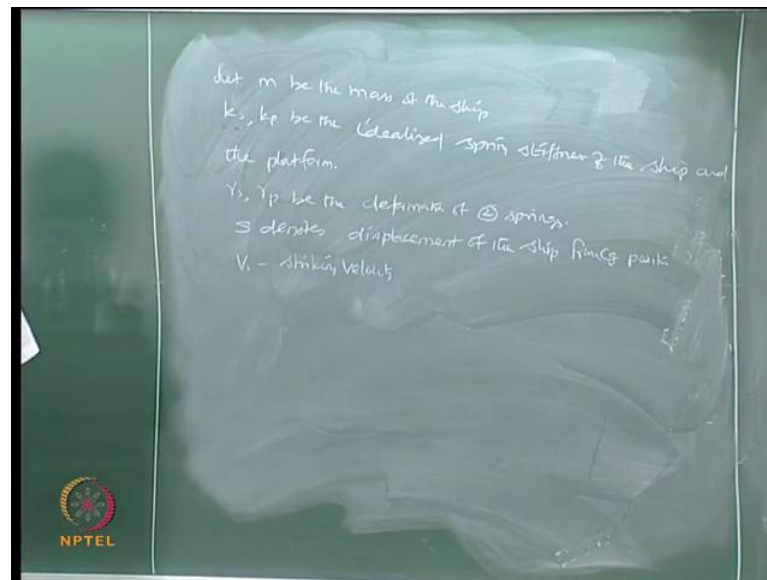 Let m be the mass of the ship
ks, kp be the idealized spring stiffness of the ship and
the platform.
γs, γp be the deformation of ② springs.
S denotes displacement of the ship from CG
V, - striking Velocity
NPTEL